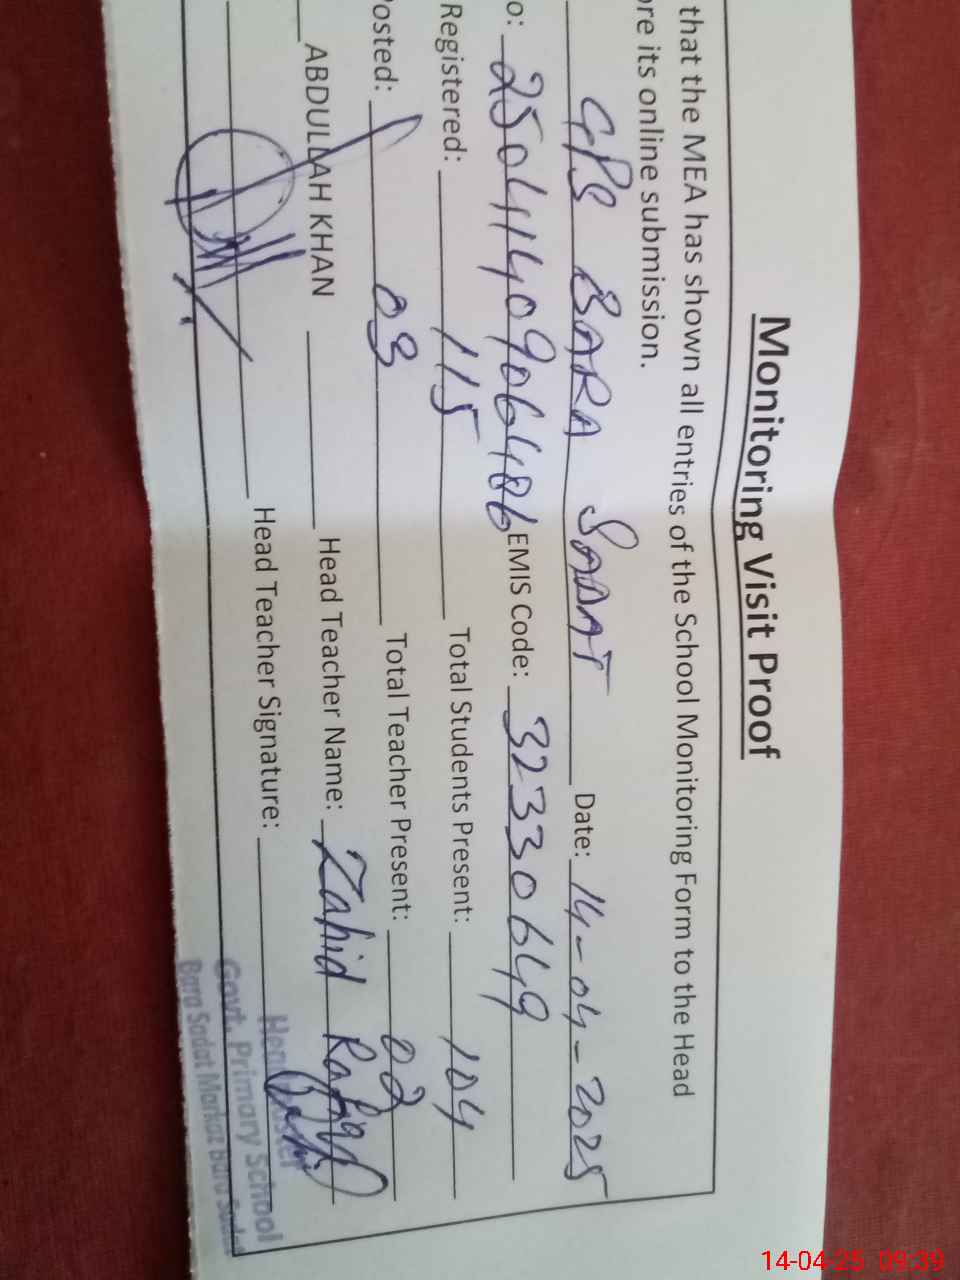 Monitoring Visit Proof
that the MEA has shown all entries of the School Monitoring Form to the Head
re its online submission.
GPS BARA SADAT Date: 14-04-2025
o: 2504140906486 EMIS Code: 32330649
Registered: 115 Total Students Present: 104
osted: 03 Total Teacher Present: 02
ABDULLAH KHAN Head Teacher Name: Zahid
Head Teacher Signature:
Head Master
Govt. Primary School
Bara Sadat Markaz Bara Sadat
14-04-25 09:39